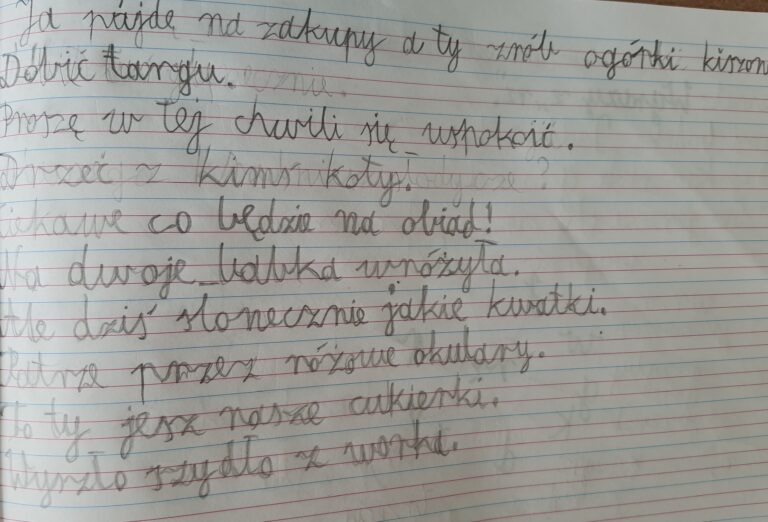 Ja pójdę na zakupy a ty zrób ogórki kiszon
Dobić targu.
Proszę w tej chwili się uspokoić.
Drzeć z kimś koty!
iekawe co będzie na obiad!
Na dwoje babka wróżyła.
Ale dziś słonecznie jakie kwiatki.
Patrzę przez różowe okulary.
To ty jesz nasze cukierki.
Wyszło szydło z worka.